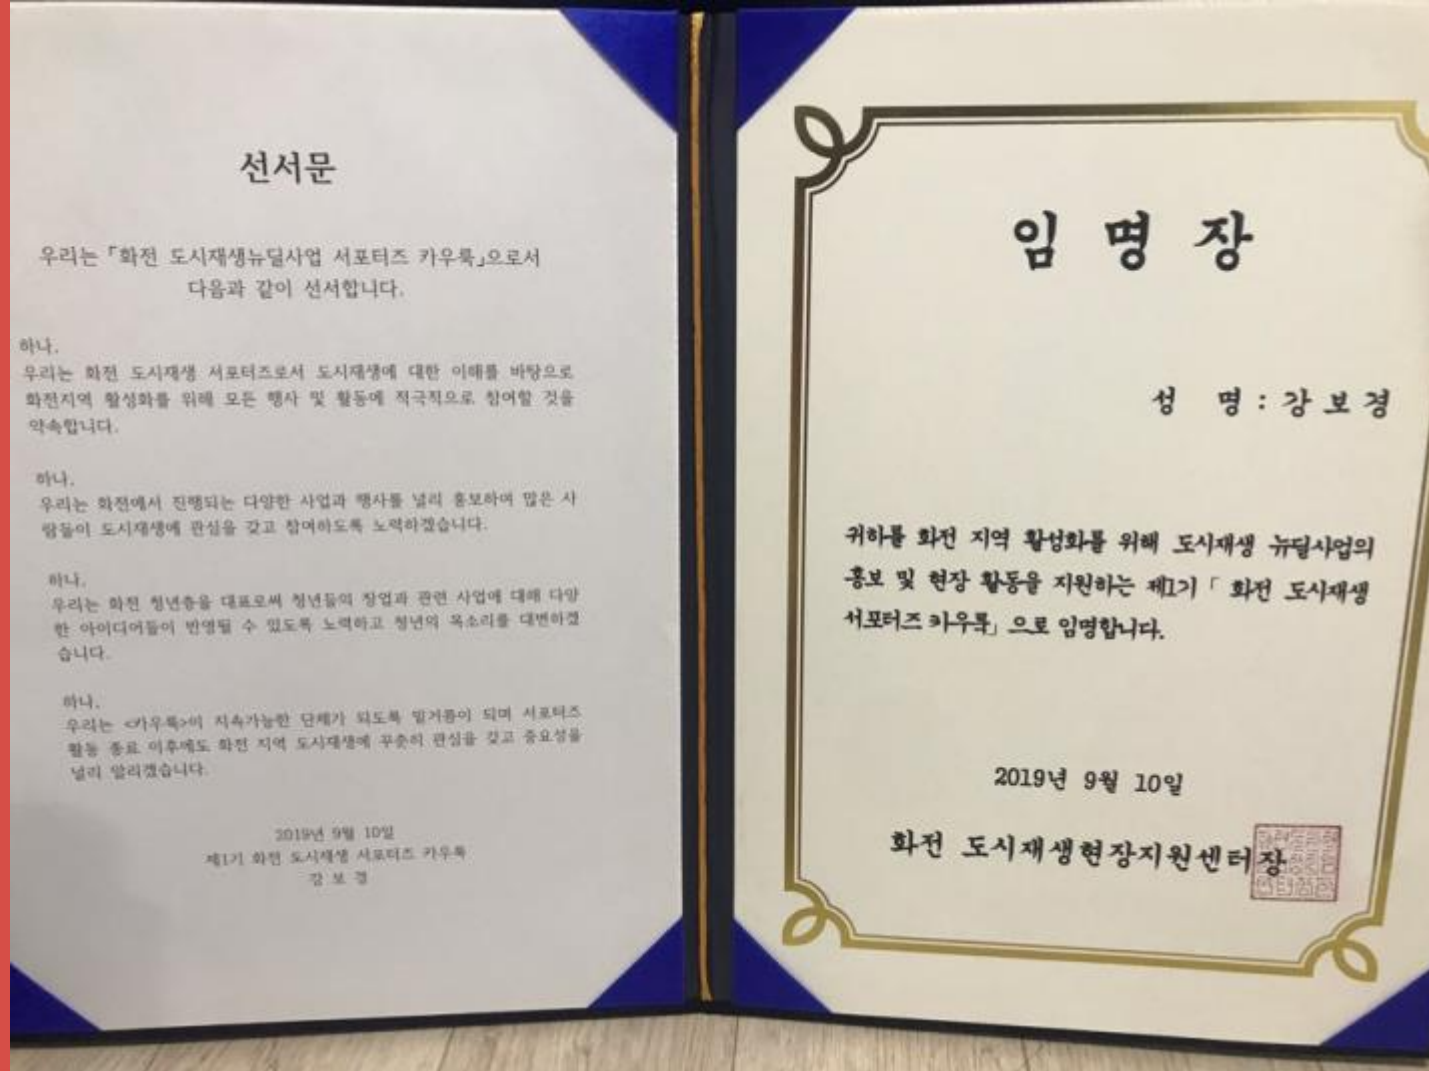 선서문
우리는 「화전 도시재생뉴딜사업 서포터즈 카우룩」으로서
다음과 같이 선서합니다.
하나,
우리는 화전 도시재생 서포터즈로서 도시재생에 대한 이해를 바탕으로
화전지역 활성화를 위해 모든 행사 및 활동에 적극적으로 참여할 것을
약속합니다.
하나,
우리는 화전에서 진행되는 다양한 사업과 행사를 널리 홍보하여 많은 사
람들이 도시재생에 관심을 갖고 참여하도록 노력하겠습니다.
하나,
우리는 화전 청년층을 대표로써 청년들의 창업과 관련 사업에 대해 다양
한 아이디어들이 반영될 수 있도록 노력하고 청년의 목소리를 대변하겠
습니다.
하나,
우리는 <카우룩>이 지속가능한 단체가 되도록 밑거름이 되며 서포터즈
활동 종료 이후에도 화전 지역 도시재생에 꾸준히 관심을 갖고 중요성을
널리 알리겠습니다.
2019년 9월 10일
제1기 화전 도시재생 서포터즈 카우룩
강 보 경
임 명 장
성 명 : 강 보 경
귀하를 화전 지역 활성화를 위해 도시재생 뉴딜사업의
홍보 및 현장 활동을 지원하는 제1기 「 화전 도시재생
서포터즈 카우룩」 으로 임명합니다.
2019년 9월 10일
화전 도시재생현장지원센터장